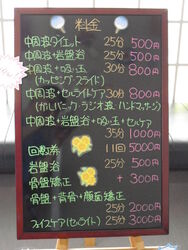 料金
中周波ダイエット 25分 500円
中周波+岩盤浴 25分 500円
中周波+吸い玉 30分 800円
(カッピング・スライド)
中周波+セルライトケア 30分 800円
(かしパニック・ラジオ波 ハンドマッサージ)
中周波+岩盤浴+吸い玉+セルケア
35分 1000円
回数券 11回 5000円
岩盤浴 25分 500円
骨盤矯正 300円
骨盤+背骨+顔面矯正
25分 2000円
フェイスケア(セルライト) 25分 3000円